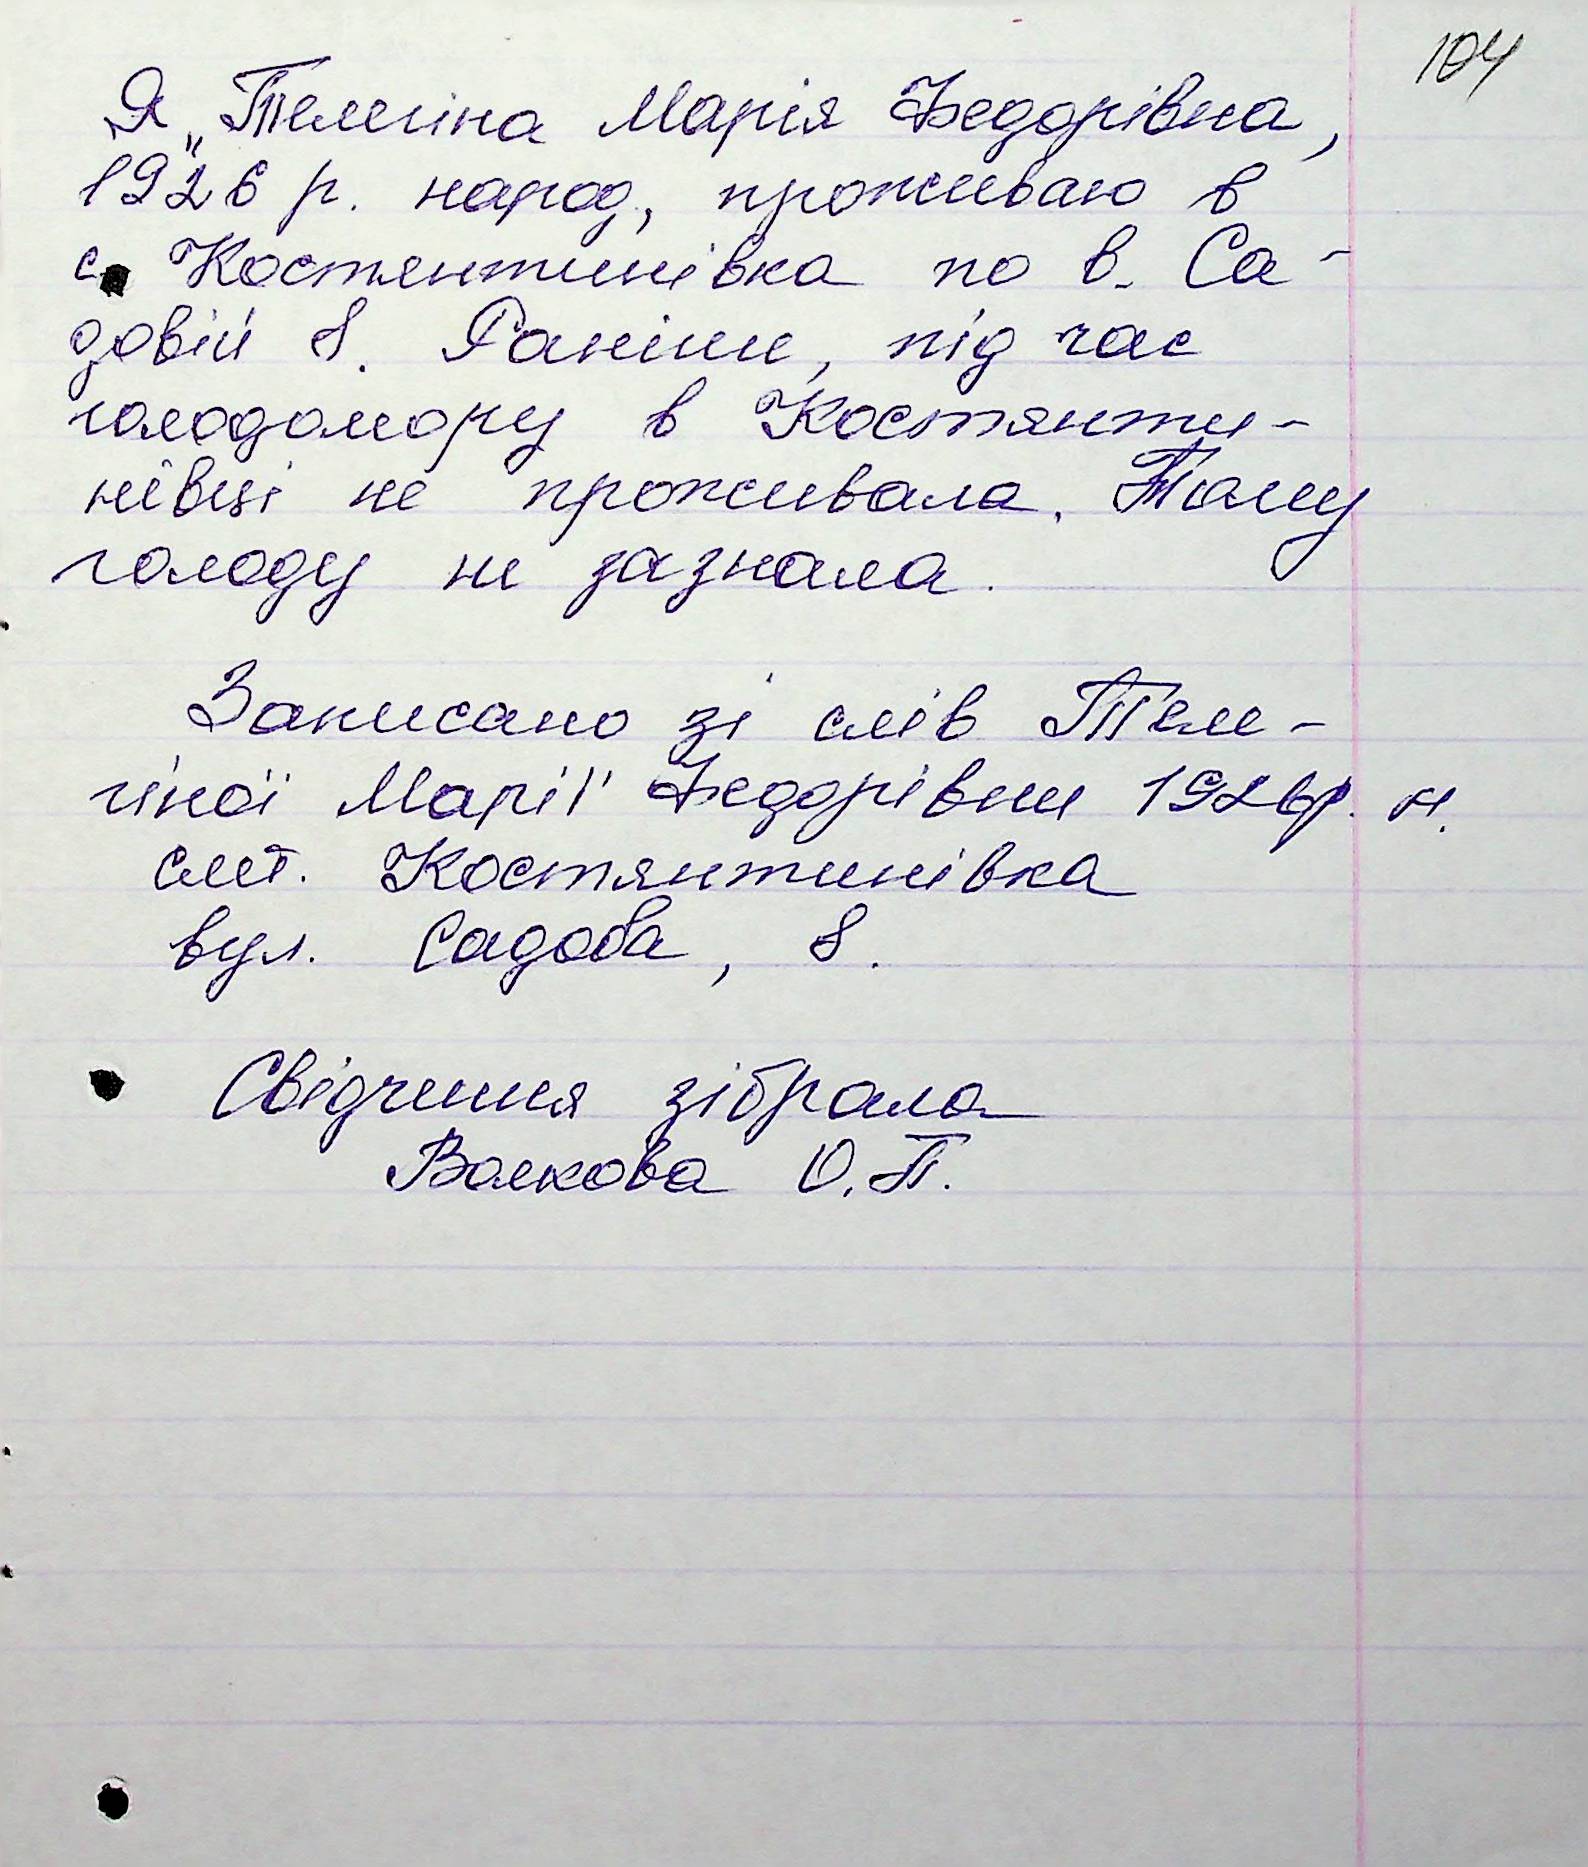 104
Я, Телегіна Марія Федорівна,
1926 р. народ, проживаю в
с. Костянтинівка по в. Са-
довій 8. Раніше, під час
голодомору в Костянти-
нівці не проживала. Тому
голоду не зазнала.
Записано зі слів Теле-
гіної Марії Федорівни 1926р. н.
смт. Костянтинівка
вул. Садова, 8.
Свідчення зібрала
Волкова О. П.